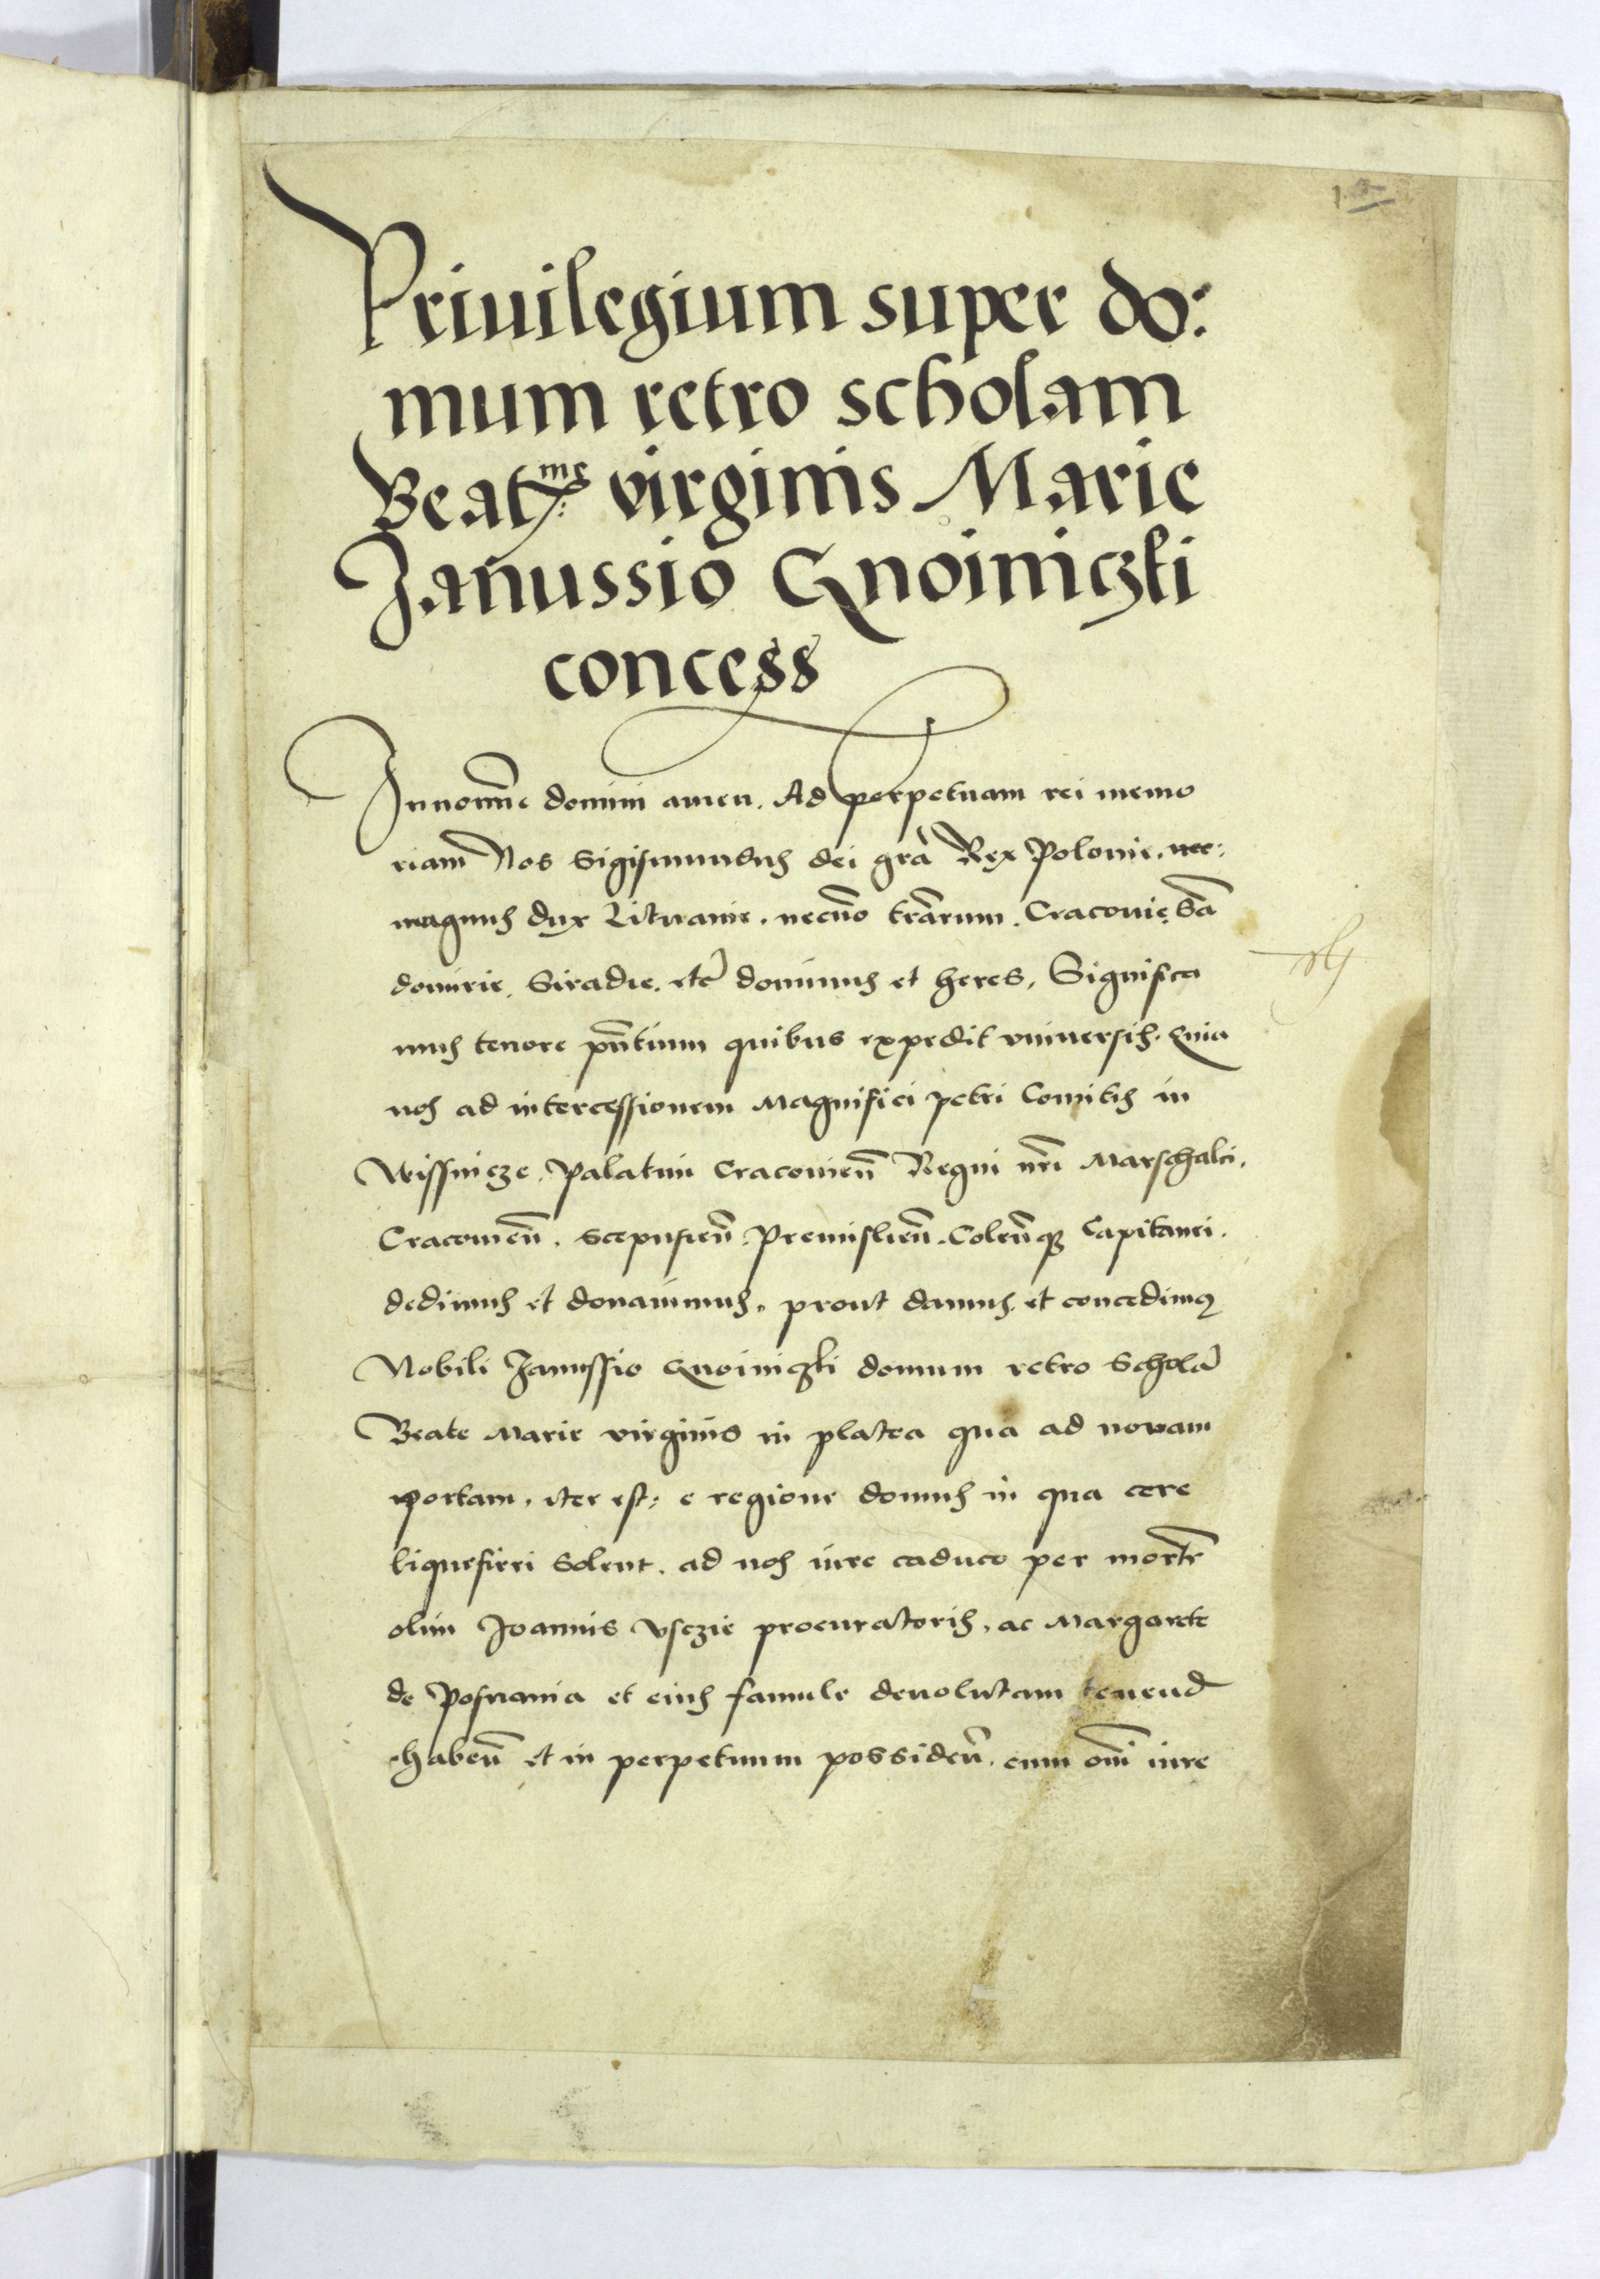 Priuilegium super do:
mum retro scholam
Beatme virginis Marie
Janussio Gnoiniczki
concess
In nomine domini amen. Ad perpetuam rei memo
riam Nos Sigismundus dei gra Rex Polonie. nec:
magnus dux Lituanie. necno trarum. Cracovie. San
domirie. Siradie. etc dominus et heres. Significa
mus tenore pntium quibus expedit vniuersis. Quia
nos ad intercessionem Magnifici Petri Comitis in
Wissnicze. Palatini Cracovien Regni nri Marschalci.
Cracovien. Scepusien. Premislien. Colenq Capitanei.
dedimus et donauimus. prout damus et concedimus
Nobili Janussio Gnoiniczki domum retro Schola
Beate Marie virginis in platea qua ad novam
portam. iter est: e regione domus in qua cere
liquefieri Solent. ad nos iure caduco per morte
olim Joannis Vsczie procuratoris. ac Margarete
de Posnania et eius famule devolutam tenend
haben et in perpetuum possiden. cum omi iure